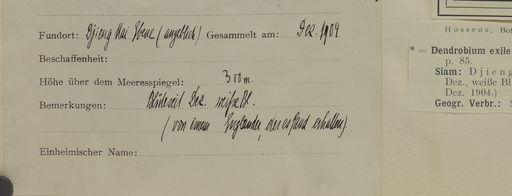 Fundort: Djieng Mai Ebene (angeblich) Gesammelt am: Dez. 1904
Beschaffenheit:
Höhe über dem Meeresspiegel: 300 m.
Bemerkungen: Blütezeit Dez. weiße Bl.
(von einem Engländer, der es fand erhalten)
Einheimischer Name:
Hosseus, Bot
* = Dendrobium exile
p. 85.
Siam: Djieng
Dez., weiße Bl
Dez. 1904.)
Geogr. Verbr.: S